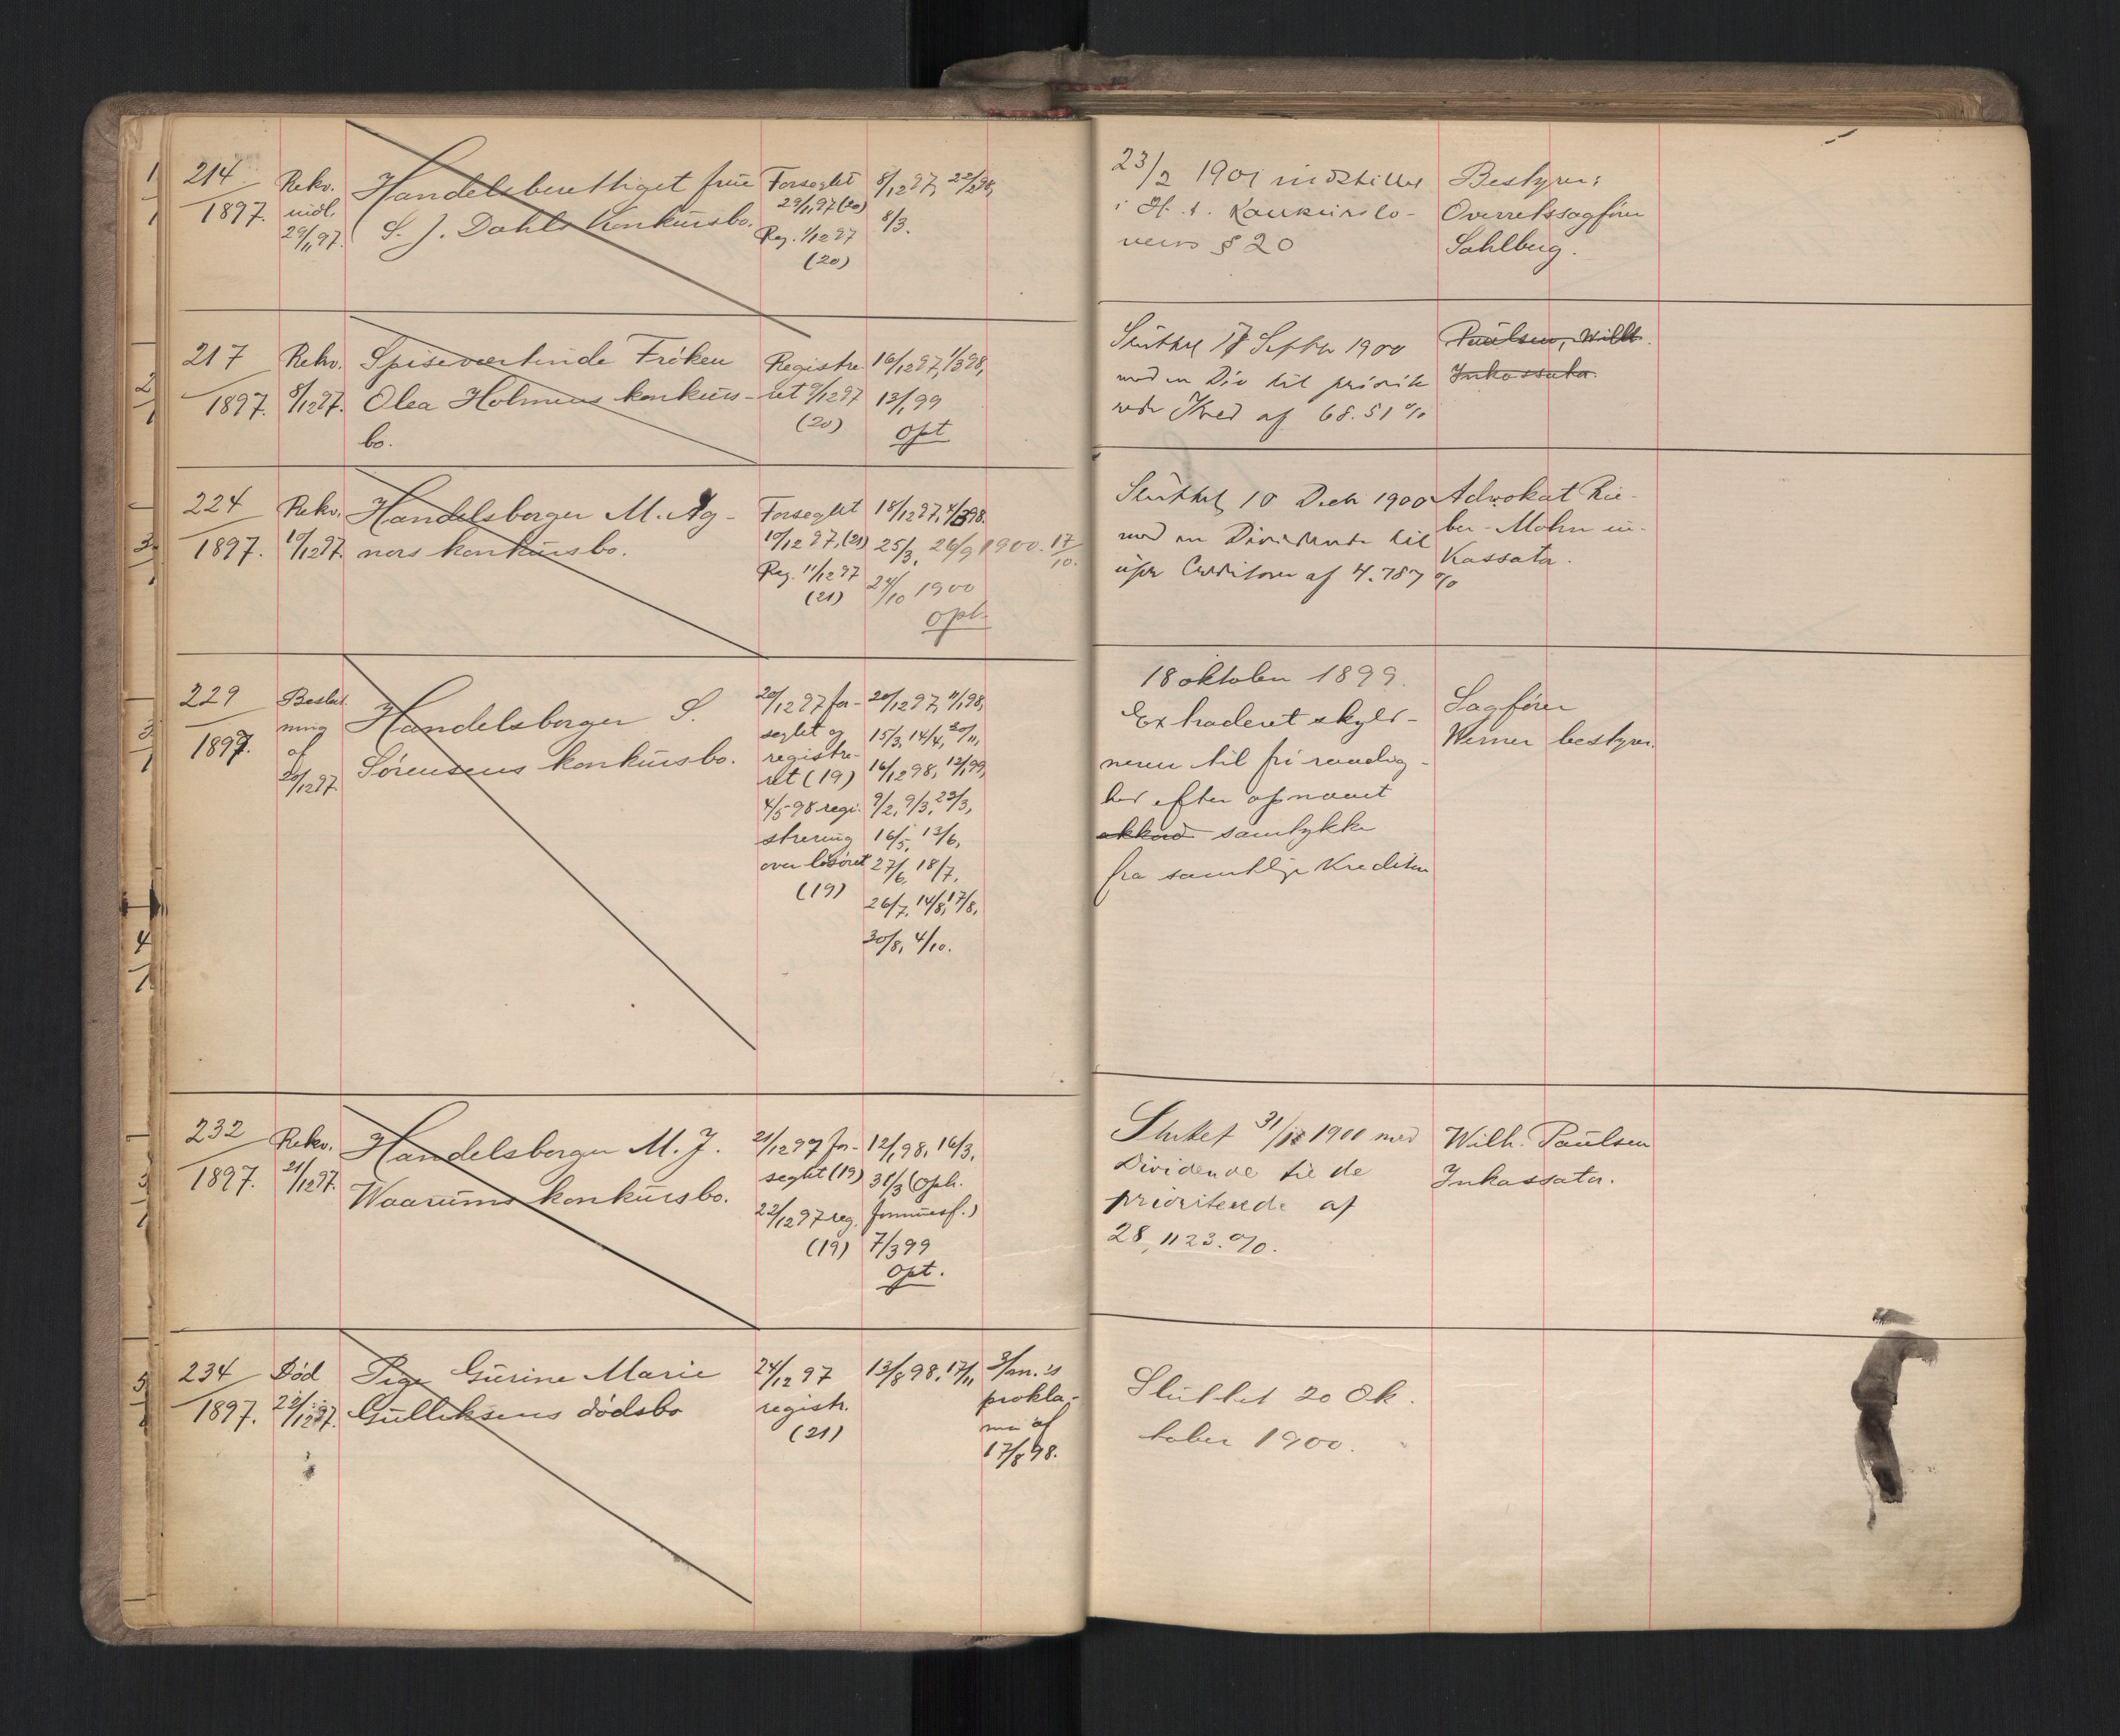 214
1897.
Rekv.
indl.
29/11 97.
Handelsberettiget frue
S. J. Dahls Konkursbo.
Forseglet
29/11 97 (20)
Reg. 1/12 97
(20)
8/12 97, 22/2 98,
8/3.
23/2 1901 indstilles
i H. t. Konkurslo-
vens § 20
Bestyrer:
Overretssagfører
Sahlberg.
217
1897.
Rekv.
8/12 97.
Spiseværtinde Frøken
Olea Holmens konkurs-
bo.
Registre-
ret 9/12 97
(20)
16/12 97, 1/3 98,
13/1 99
opt
Sluttet 17 Septbr 1900
med en Div til priorite
rede Kred af 68.51 %
Paulsen, Wilh.
Inkassator.
224
1897.
Rekv.
10/12 97.
Handelsborger M. Ag-
ners konkursbo.
Forseglet
10/12 97, (21)
Reg. 11/12 97
(21)
18/12 97, 4/3 98.
25/3, 26/9 1900. 17/10.
24/10 1900
opt.
Sluttet 10 Decbr 1900
med en Dividende til
upr Creditorer af 4.787 %
Advokat Rie-
ber-Mohn in-
kassator.
229
1897.
Beslut
ning
af
20/12 97.
Handelsborger S.
Sørensens konkursbo.
20/12 97 for-
seglet og
registre-
ret (19)
4/5 98 regi-
strering
over løsøret
(19)
20/12 97, 11/1 98,
15/3, 14/4, 30/11,
16/12 98, 12/1 99,
9/2, 9/3, 23/3,
16/5, 13/6,
27/6, 18/7,
26/7, 14/8, 17/8,
30/8, 4/10.
18 oktober 1899.
Extraderet skyld-
neren til fri raadig-
hed efter opnaaet
akkord samtykke
fra samtlige Kreditor
Sagfører
Werner bestyrer.
232
1897.
Rekv.
21/12 97.
Handelsborger M. J.
Waarums konkursbo.
21/12 97 for-
seglet (19)
22/12 97 reg.
(19)
12/1 98, 16/3,
31/3 (oph.
formuesf.)
7/3 99
opt.
Sluttet 31/12 1900 med
Dividende til de
prioriterede af
28,1123.%.
Wilh. Paulsen
Inkassator.
234
1897.
Død
22/12 97.
Pige Gurine Marie
Gulliksens dødsbo
24/12 97
registr.
(21)
13/8 98, 17/11
3/mn.'s
prokla-
ma af
17/8 98.
Sluttet 20 Ok
tober 1900.